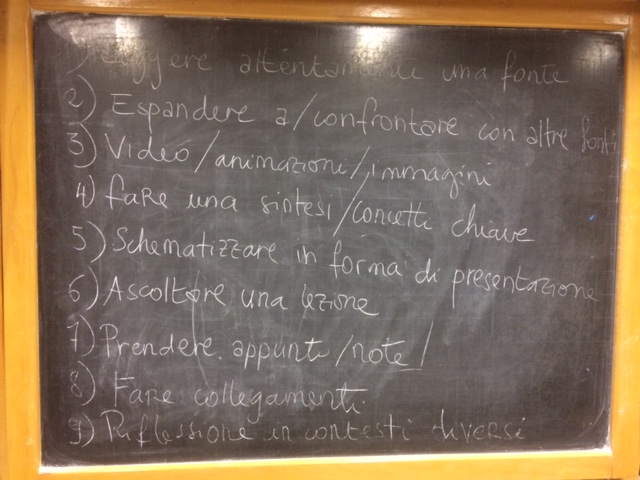 1) Leggere attentamente una fonte
2) Espandere a/confrontare con altre fonti
3) Video/animazioni/immagini
4) fare una sintesi/concetti chiave
5) Schematizzare in forma di presentazione
6) Ascoltare una lezione
7) Prendere appunti/note/
8) Fare collegamenti
9) Riflessione in contesti diversi